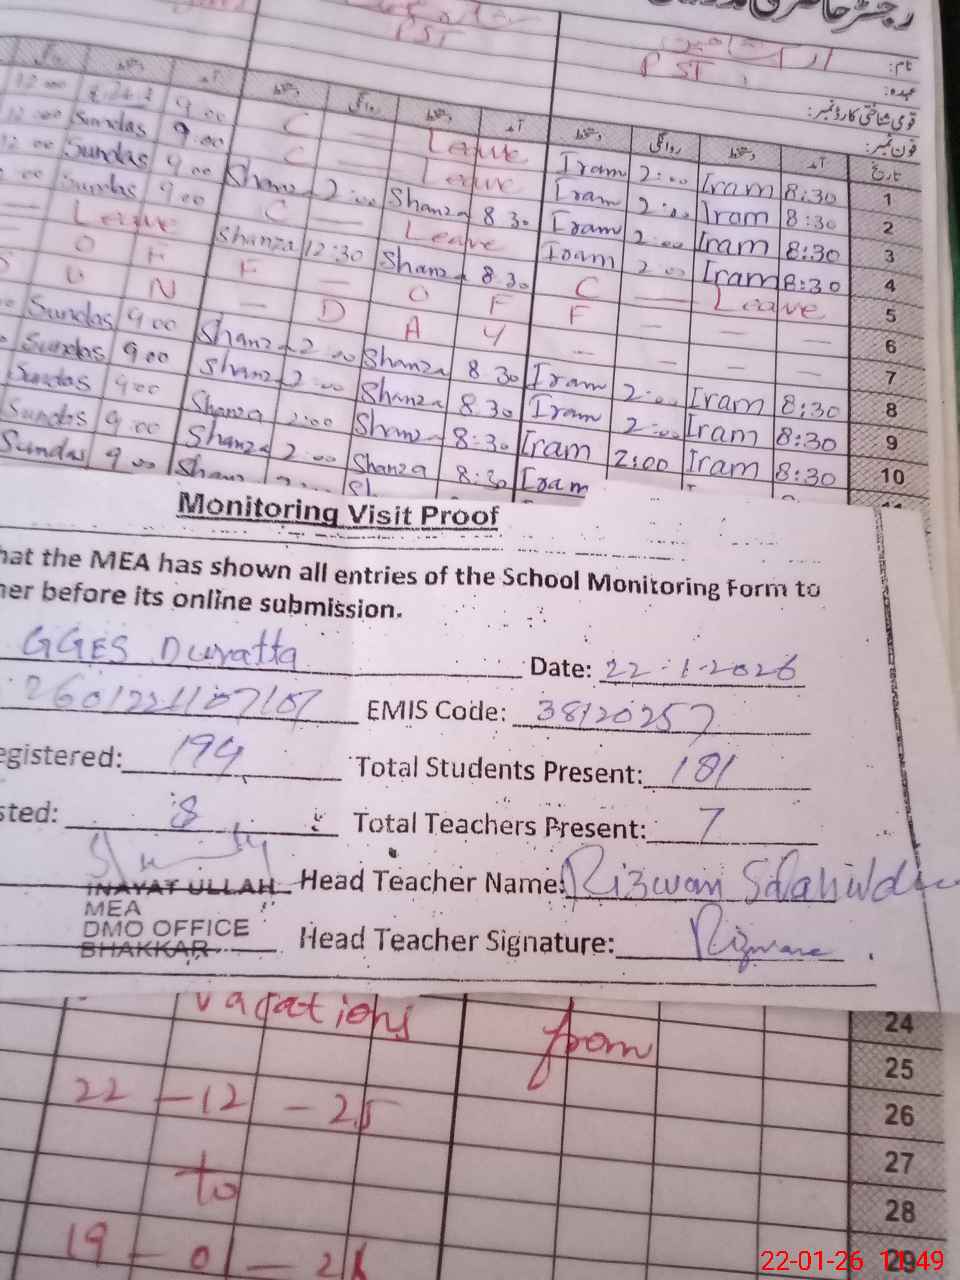 PST
PST
نام:
عہدہ:
قومی شناختی کارڈ نمبر:
فون نمبر:
تاریخ
آمد
دستخط
روانگی
دستخط
آمد
دستخط
روانگی
دستخط
آمد
12:00 9.00 C — Leave Iram 2:00 Iram 8:30 1
12:00 Sundas 9.00 C — Leave Iram 2:00 Iram 8:30 2
12:00 Sundas 9.00 Shanza 2:00 Shanza 8.30 Iram 2:00 Iram 8:30 3
Sundas 9.00 C — Leave Iram 2:00 Iram 8:30 4
— Leave Shanza 12:30 Shanza 8.30 C — Leave 5
— O F F — O F F — — — 6
S U N — D A Y — — — — 7
Sundas 9.00 Shanza 2:00 Shanza 8.30 Iram 2:00 Iram 8:30 8
Sundas 9.00 Shanza 2:00 Shanza 8.30 Iram 2:00 Iram 8:30 9
Sundas 9.00 Shanza 2:00 Shanza 8:30 Iram 2:00 Iram 8:30 10
Sundas 9.00 Shanza 2:00 Shanza 8:30 Iram
Sundas 9.00 Shan
Monitoring Visit Proof
hat the MEA has shown all entries of the School Monitoring Form to
her before its online submission.
GGES Duratta Date: 22-1-2026
2601221107107 EMIS Code: 38120257
egistered: 194 Total Students Present: 181
sted: 8 Total Teachers Present: 7
INAYAT ULLAH Head Teacher Name: Rizwan
MEA
DMO OFFICE Head Teacher Signature: Rizwan
BHAKKAR
vacations from 24
25
22-12-25 26
to 27
28
19-01-26 29
22-01-26 11:49